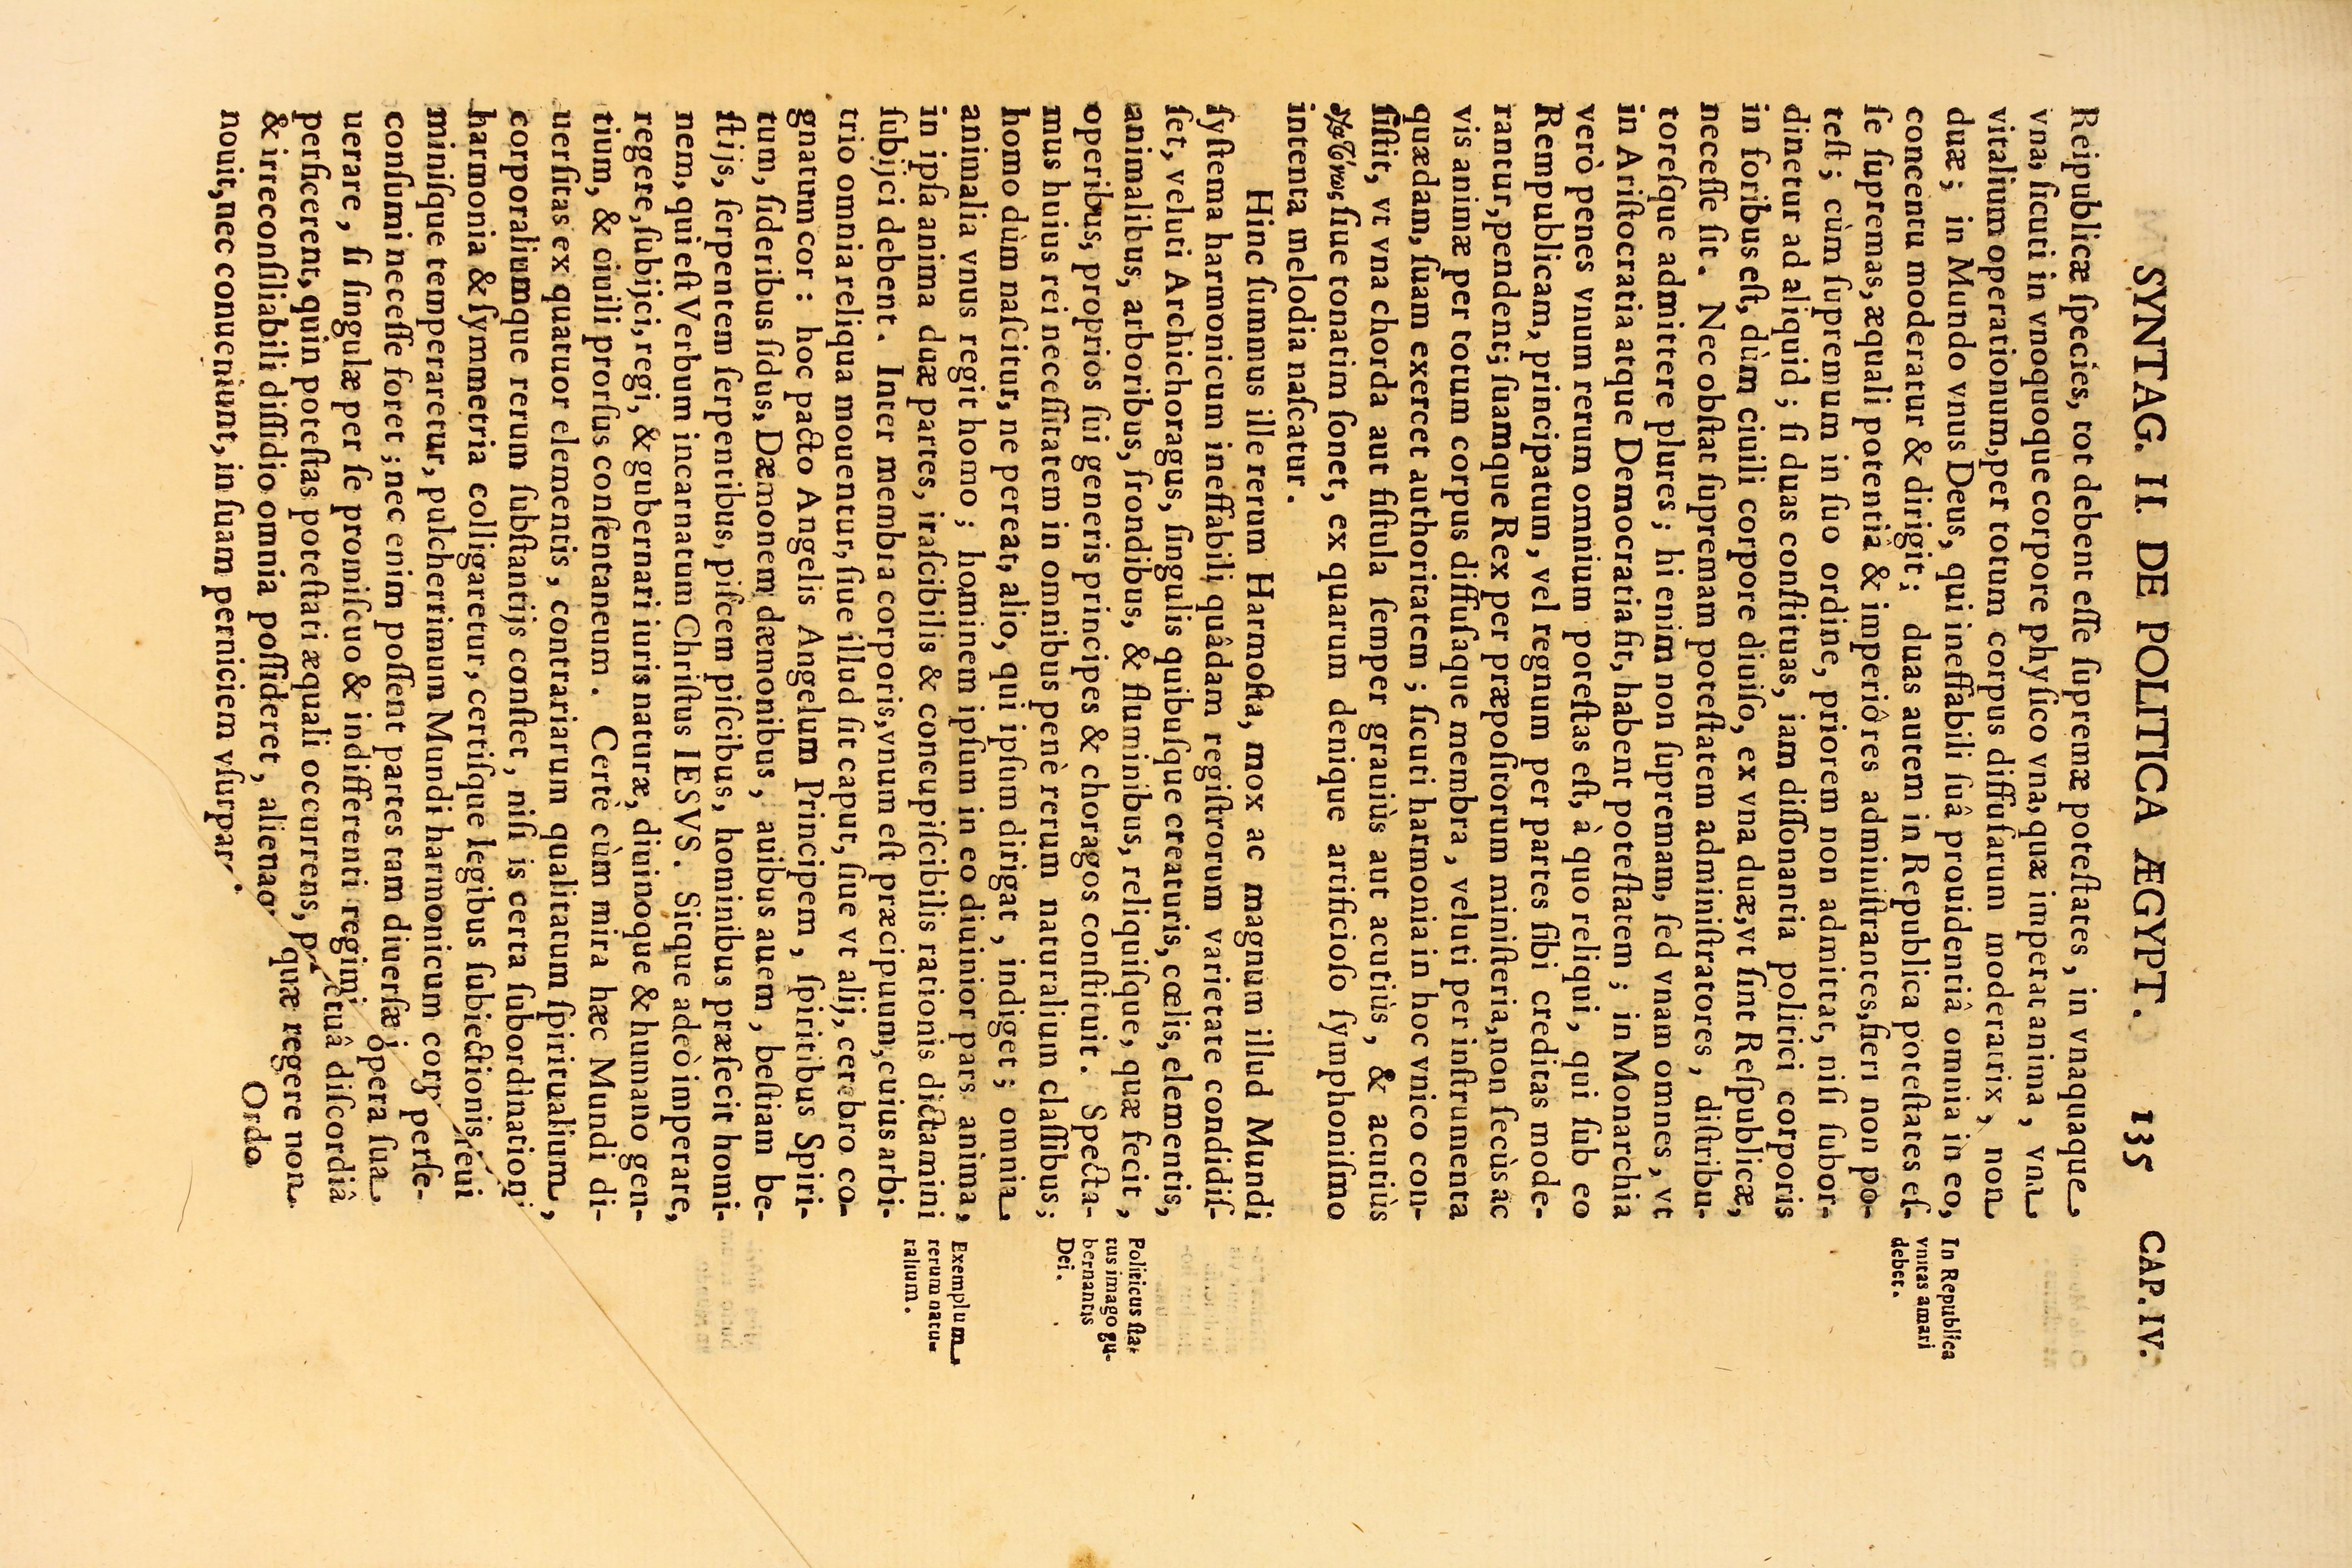 SYNTAG. II. DE POLITICA ÆGYPT. 135 CAP. IV.
Reipublicæ ſpecies, tot debent eſſe ſupremæ poteſtates, in vnaquaque
vna, ſicuti in vnoquoque corpore phyſico vna, quæ imperat anima, vna
vitalium operationum, per totum corpus diffuſarum moderatrix, non
duæ; in Mundo vnus Deus, qui ineffabili ſuâ prouidentiâ omnia in eo,
concentu moderatur & dirigit; duas autem in Republica poteſtates eſ-
ſe ſupremas, æquali potentiâ & imperio res adminiſtrantes, fieri non po-
teſt; cùm ſupremum in ſuo ordine, priorem non admittat, niſi ſubor-
dinetur ad aliquid; ſi duas conſtituas, iam diſſonantia politici corporis
in foribus eſt, dùm ciuili corpore diuiſo, ex vna duæ, vt ſint Reſpublicæ,
neceſſe ſit. Nec obſtat ſupremam poteſtatem adminiſtratores, diſtribu-
toreſque admittere plures; hi enim non ſupremam, ſed vnam omnes, vt
in Ariſtocratia atque Democratia fit, habent poteſtatem; in Monarchia
verò penes vnum rerum omnium poteſtas eſt, à quo reliqui, qui ſub eo
Rempublicam, principatum, vel regnum per partes ſibi creditas mode-
rantur, pendent; ſuamque Rex per præpoſitorum miniſteria, non ſecùs ac
vis animæ per totum corpus diffuſaque membra, veluti per inſtrumenta
quædam, ſuam exercet authoritatem; ſicuti harmonia in hoc vnico con-
ſiſtit, vt vna chorda aut fiſtula ſemper grauiùs aut acutiùs, & acutiùs
ſiue tonatim ſonet, ex quarum denique artificioſo ſymphoniſmo
intenta melodia naſcatur.
Hinc ſummus ille rerum Harmoſta, mox ac magnum illud Mundi
ſyſtema harmonicum ineffabili quâdam regiſtrorum varietate condidiſ-
ſet, veluti Archichoragus, ſingulis quibuſque creaturis, cœlis, elementis,
animalibus, arboribus, frondibus, & fluminibus, reliquiſque, quæ fecit,
operibus, proprios ſui generis principes & choragos conſtituit. Specta-
mus huius rei neceſſitatem in omnibus penè rerum naturalium claſſibus;
homo dùm naſcitur, ne pereat, alio, qui ipſum dirigat, indiget; omnia
animalia vnus regit homo; hominem ipſum in eo diuinior pars anima,
in ipſa anima duæ partes, iraſcibilis & concupiſcibilis rationis dictamini
ſubijci debent. Inter membra corporis, vnum eſt præcipuum, cuius arbi-
trio omnia reliqua mouentur, ſiue illud ſit caput, ſiue vt alij, cerebro co-
gnatum cor: hoc pacto Angelis Angelum Principem, ſpiritibus Spiri-
tum, ſideribus ſidus, Dæmonem dæmonibus, auibus auem, beſtiam be-
ſtijs, ſerpentem ſerpentibus, piſcem piſcibus, hominibus præfecit homi-
nem, qui eſt Verbum incarnatum Chriſtus IESVS. Sitque adeò imperare,
regere, ſubijci, regi, & gubernari iuris naturæ, diuinoque & humano gen-
tium, & ciuili prorſus conſentaneum. Certè cùm mira hæc Mundi di-
uerſitas ex quatuor elementis, contrariarum qualitatum ſpiritualium,
corporaliumque rerum ſubſtantijs conſtet, niſi is certa ſubordination
harmonia & ſymmetria colligaretur, certiſque legibus ſubiectionis, ceui
miniſque temperaretur, pulcherrimum Mundi harmonicum corp perſe-
conſumi neceſſe foret; nec enim poſſent partes tam diuerſæ opera ſua
uerare, ſi ſingulæ per ſe promiſcuo & indifferenti regimi ctuâ diſcordiâ
perficerent, quin poteſtas poteſtati æquali occurrens, quæ regere non
& irreconſiliabili diſſidio omnia poſſideret,
nouit, nec conueniunt, in ſuam perniciem vſurpar
Ordo
In Republica
vnitas amari
debet.
Politicus ſta-
tus imago gu-
bernantis
Dei.
Exemplum
rerum natu-
ralium.